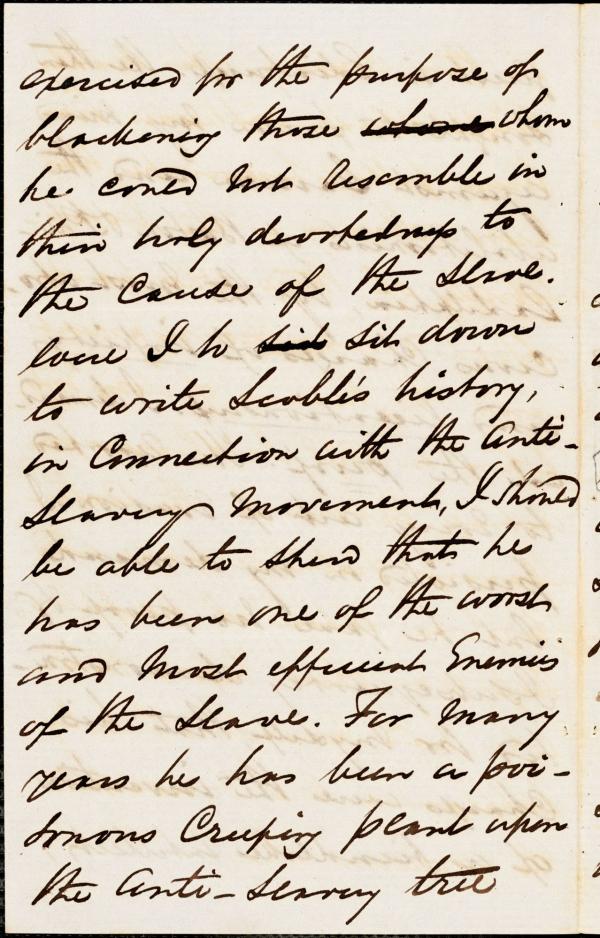 exercised for the purpose of
blackening those whome whom
he could not resemble in
their holy devotedness to
the cause of the Slave.
were I to sid sit down
to write Scoble's history,
in connection with the Anti-
Slavery Movement, I should
be able to shew that he
has been one of the worst
and most efficient Enemies
of the Slave. For many
years he has been a poi-
sonous Creeping plant upon
the Anti-Slavery tree